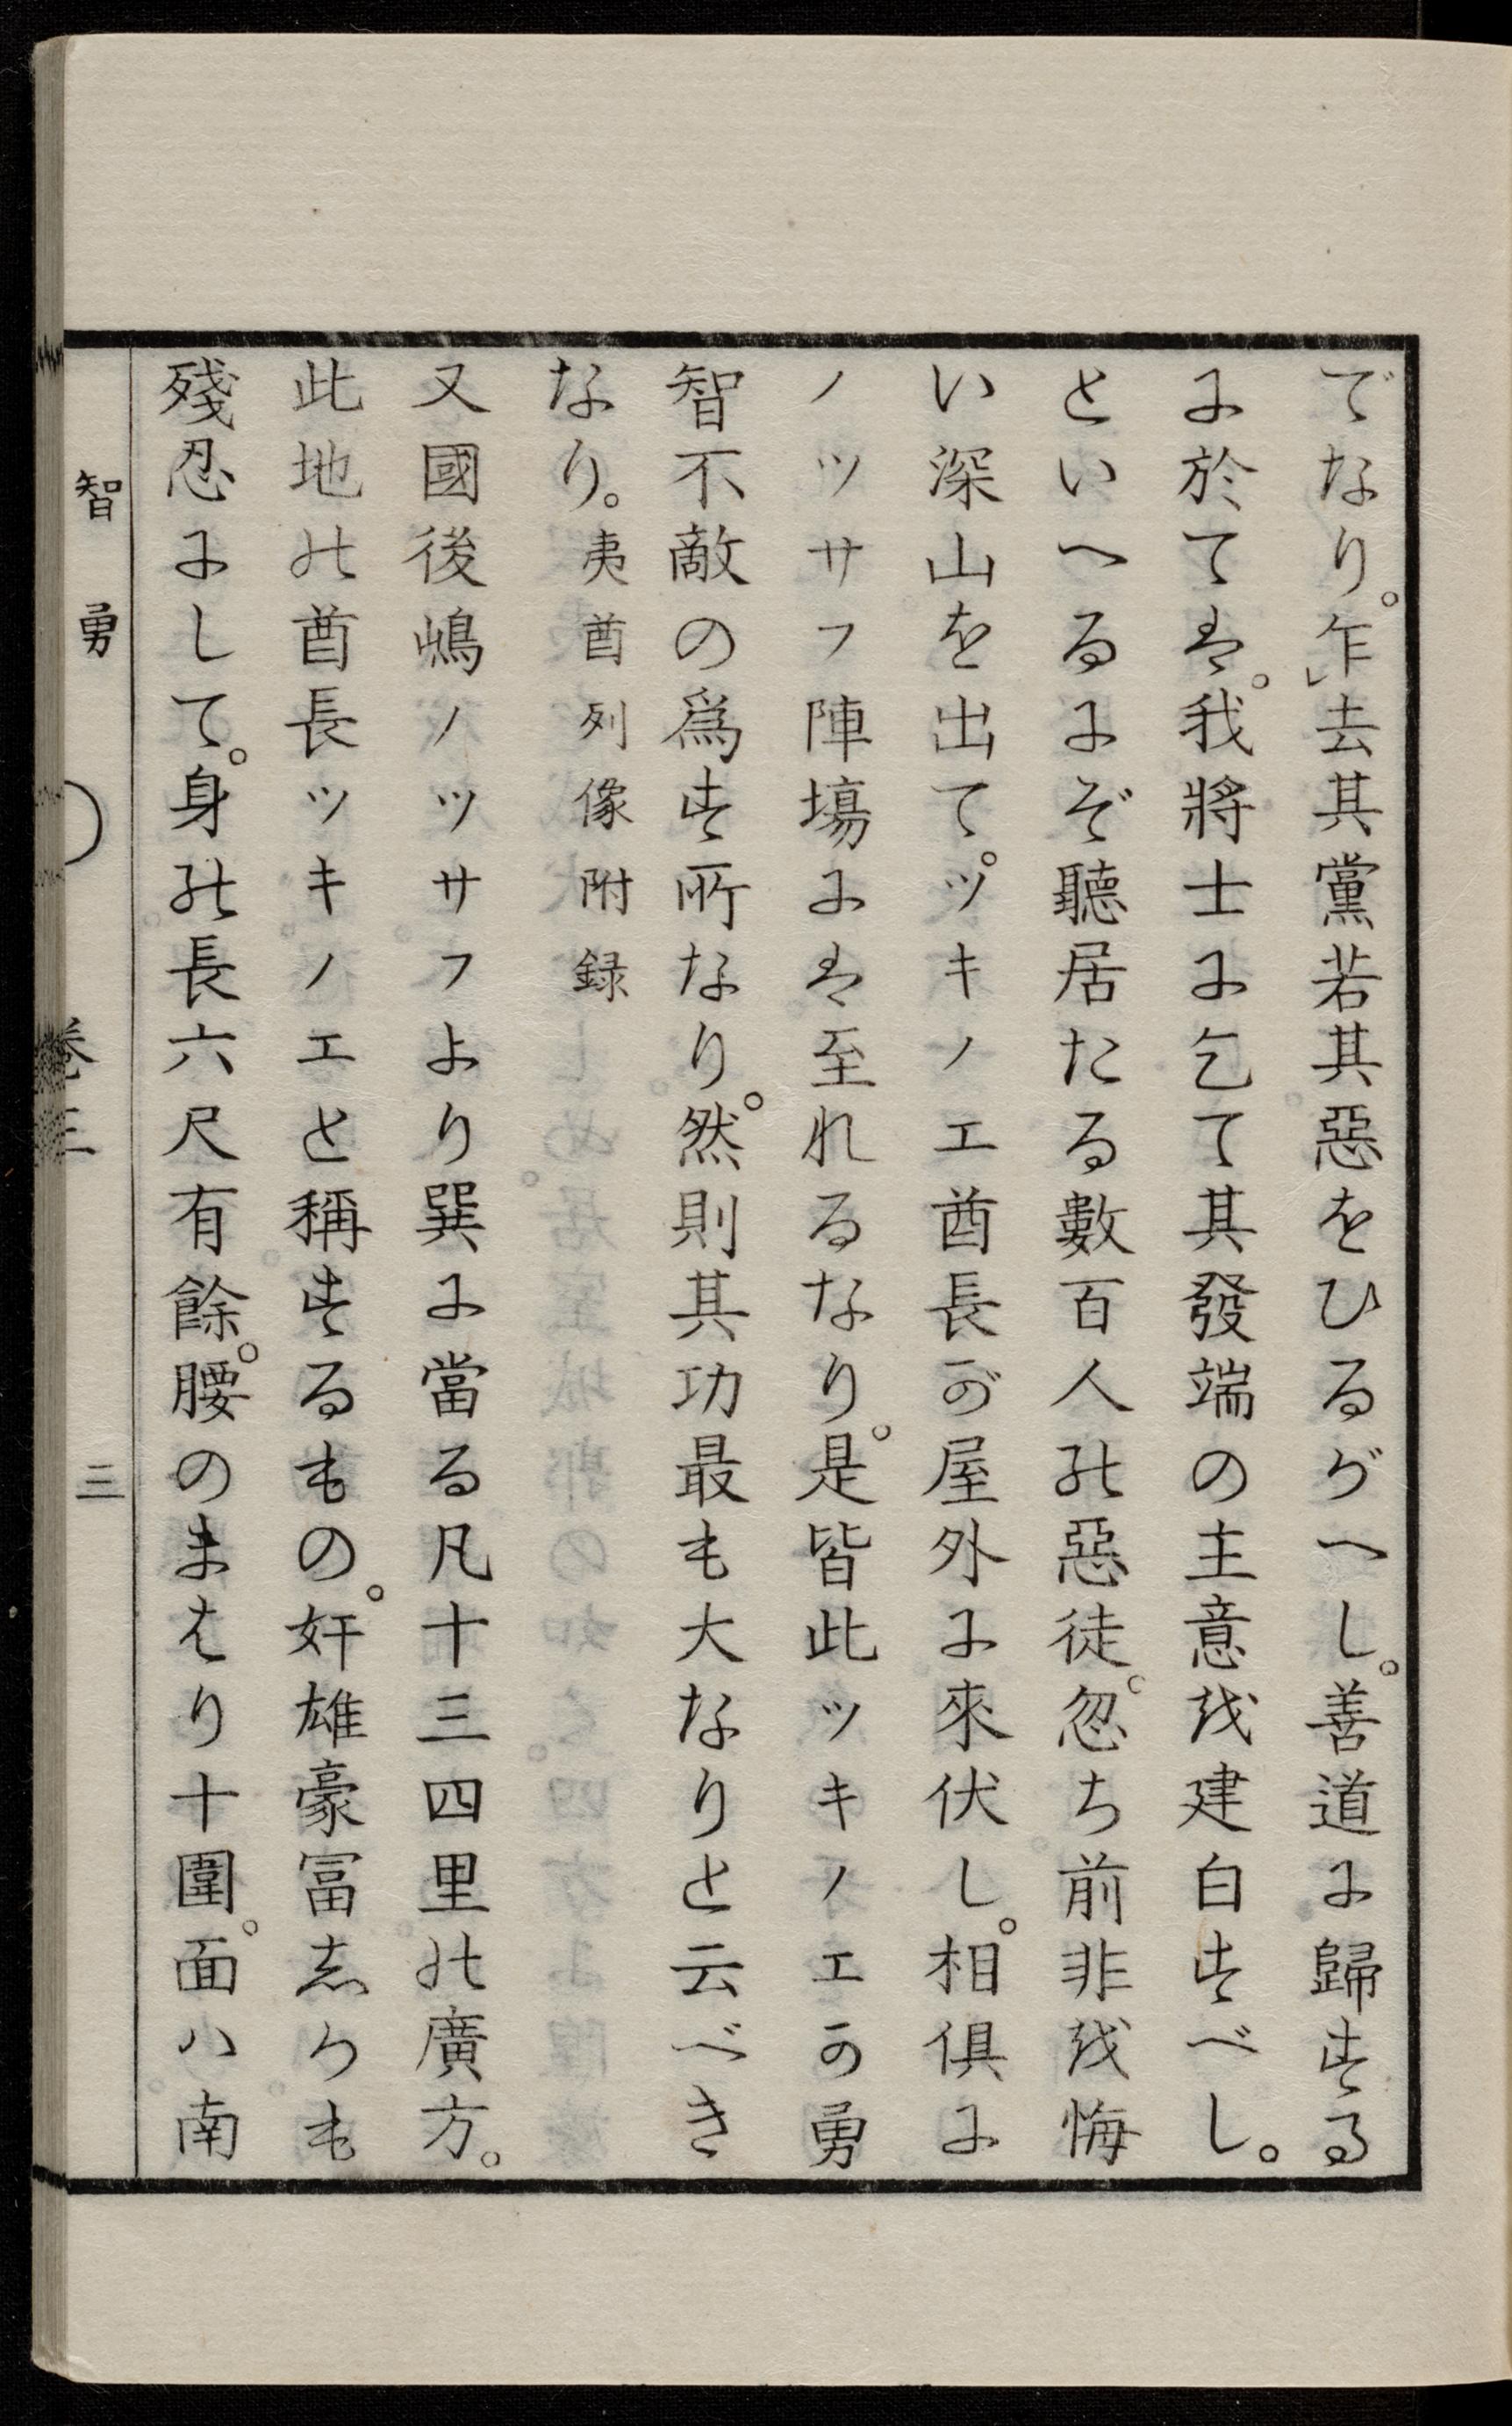 でなり。乍去其黨若其惡をひるがへし。善道に歸する
に於ては。我將士に乞て其發端の主意を建白すべし。
といへるにぞ聽居たる數百人の惡徒。忽ち前非を悔
い深山を出て。ツキノエ酋長が屋外に來伏し。相俱に
ノツサフ陣塲には至れるなり。是皆此ツキノエの勇
智不敵の爲す所なり。然則其功最も大なりと云べき
なり。夷酋列像附録
又國後嶋ノツサフより巽に當る凡十三四里の廣方。
此地の酋長ツキノエと稱するもの。奸雄豪冨志かも
殘忍にして。身の長六尺有餘。腰のまはり十圍。面ハ南
智勇 卷三 三